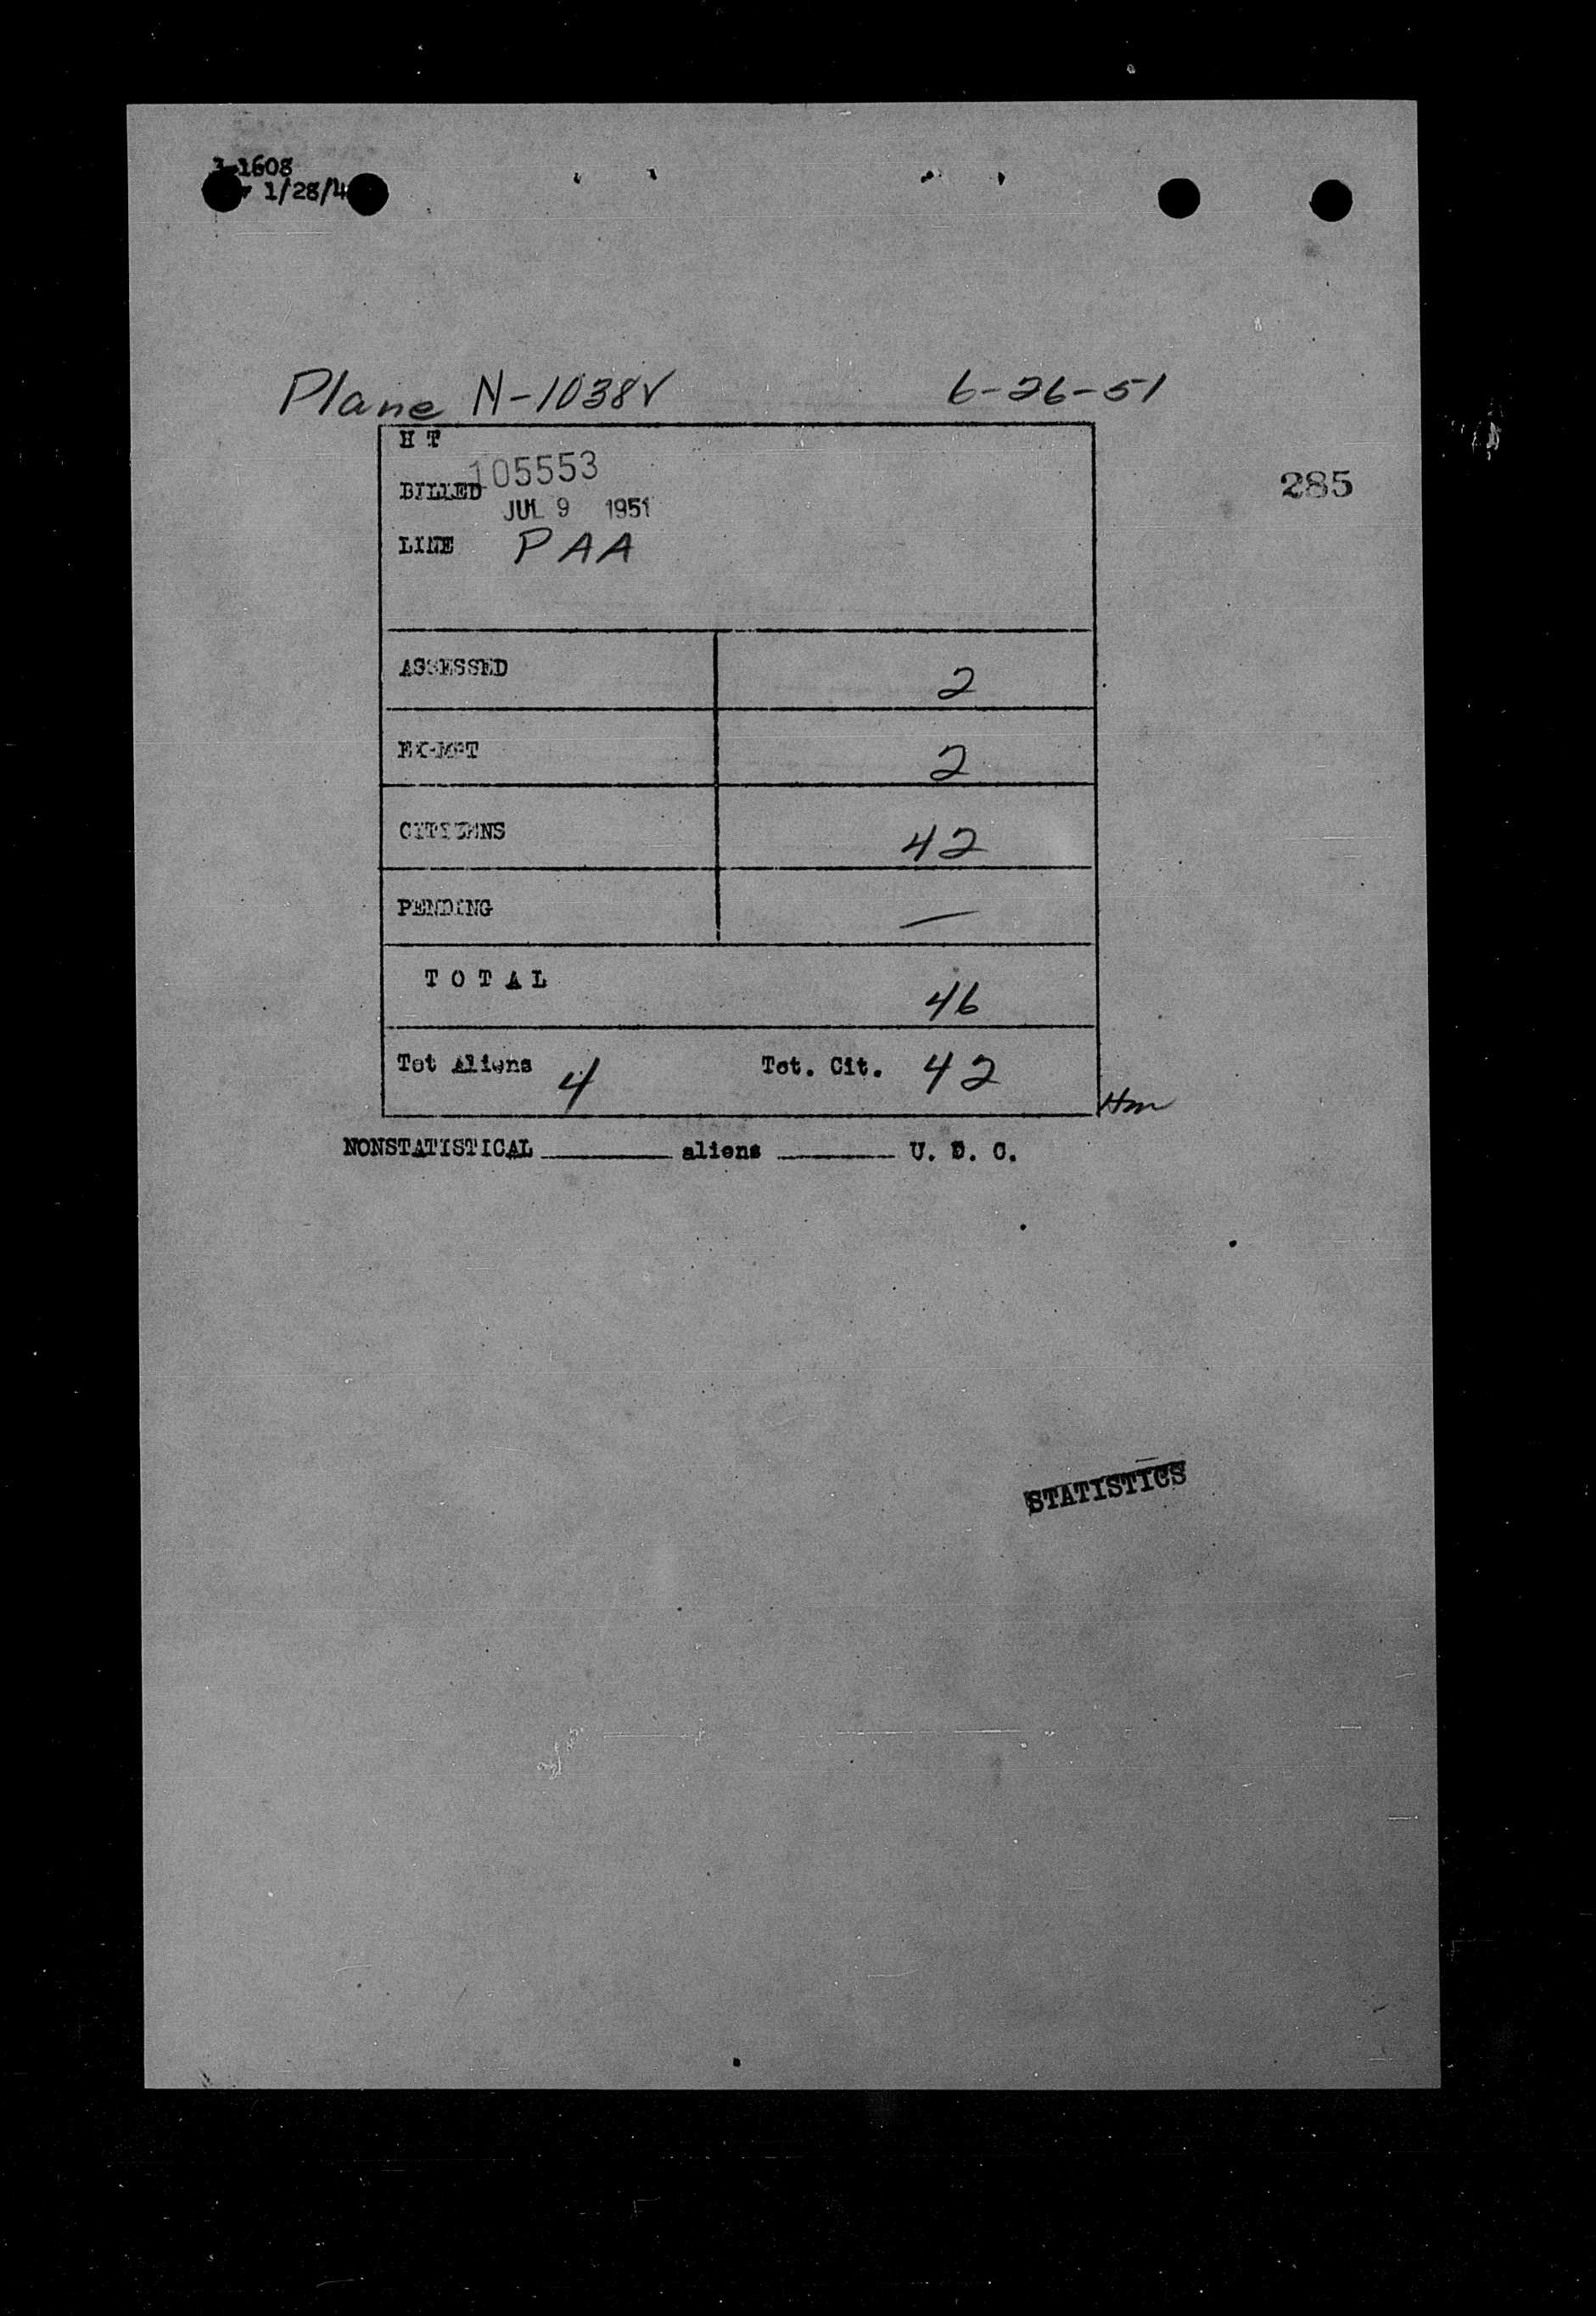 3-1608
1/28/4
Plane N-1038V 6-26-51
H T
105553
BILLED
285
JUL 9 1951
LINE PAA
ASSESSED 2
EXEMPT 2
CITIZENS 42
PENDING —
T O T A L 46
Tot Aliens 4 Tot. Cit. 42
Hm
NONSTATISTICAL ______ aliens ______ U. S. C.
STATISTICS